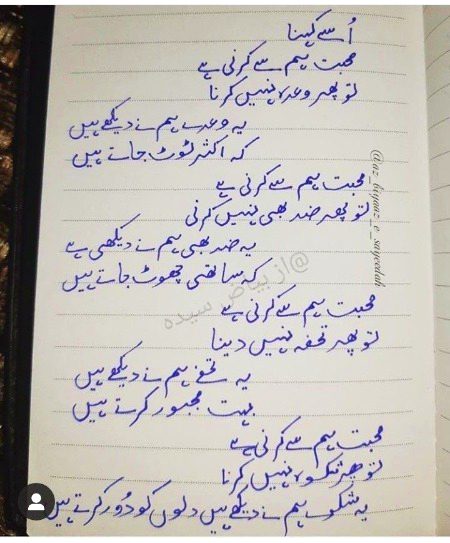 اُسے کہنا
محبت ہم سے کرنی ہے
تو پھر وعدہ نہیں کرنا
یہ وعدے ہم نے دیکھے ہیں
کہ اکثر ٹوٹ جاتے ہیں
محبت ہم سے کرنی ہے
تو پھر ضد بھی نہیں کرنی
یہ ضد بھی ہم نے دیکھی ہے
کہ ساتھی چھوٹ جاتے ہیں
محبت ہم سے کرنی ہے
تو پھر تحفہ نہیں دینا
یہ تحفے ہم نے دیکھے ہیں
بہت مجبور کرتے ہیں
محبت ہم سے کرنی ہے
تو پھر شکوہ نہیں کرنا
یہ شکوے ہم نے دیکھے ہیں دلوں کو دُور کرتے ہیں
@از بیاض سیدہ
@az_beyaaz_e_sayeedah